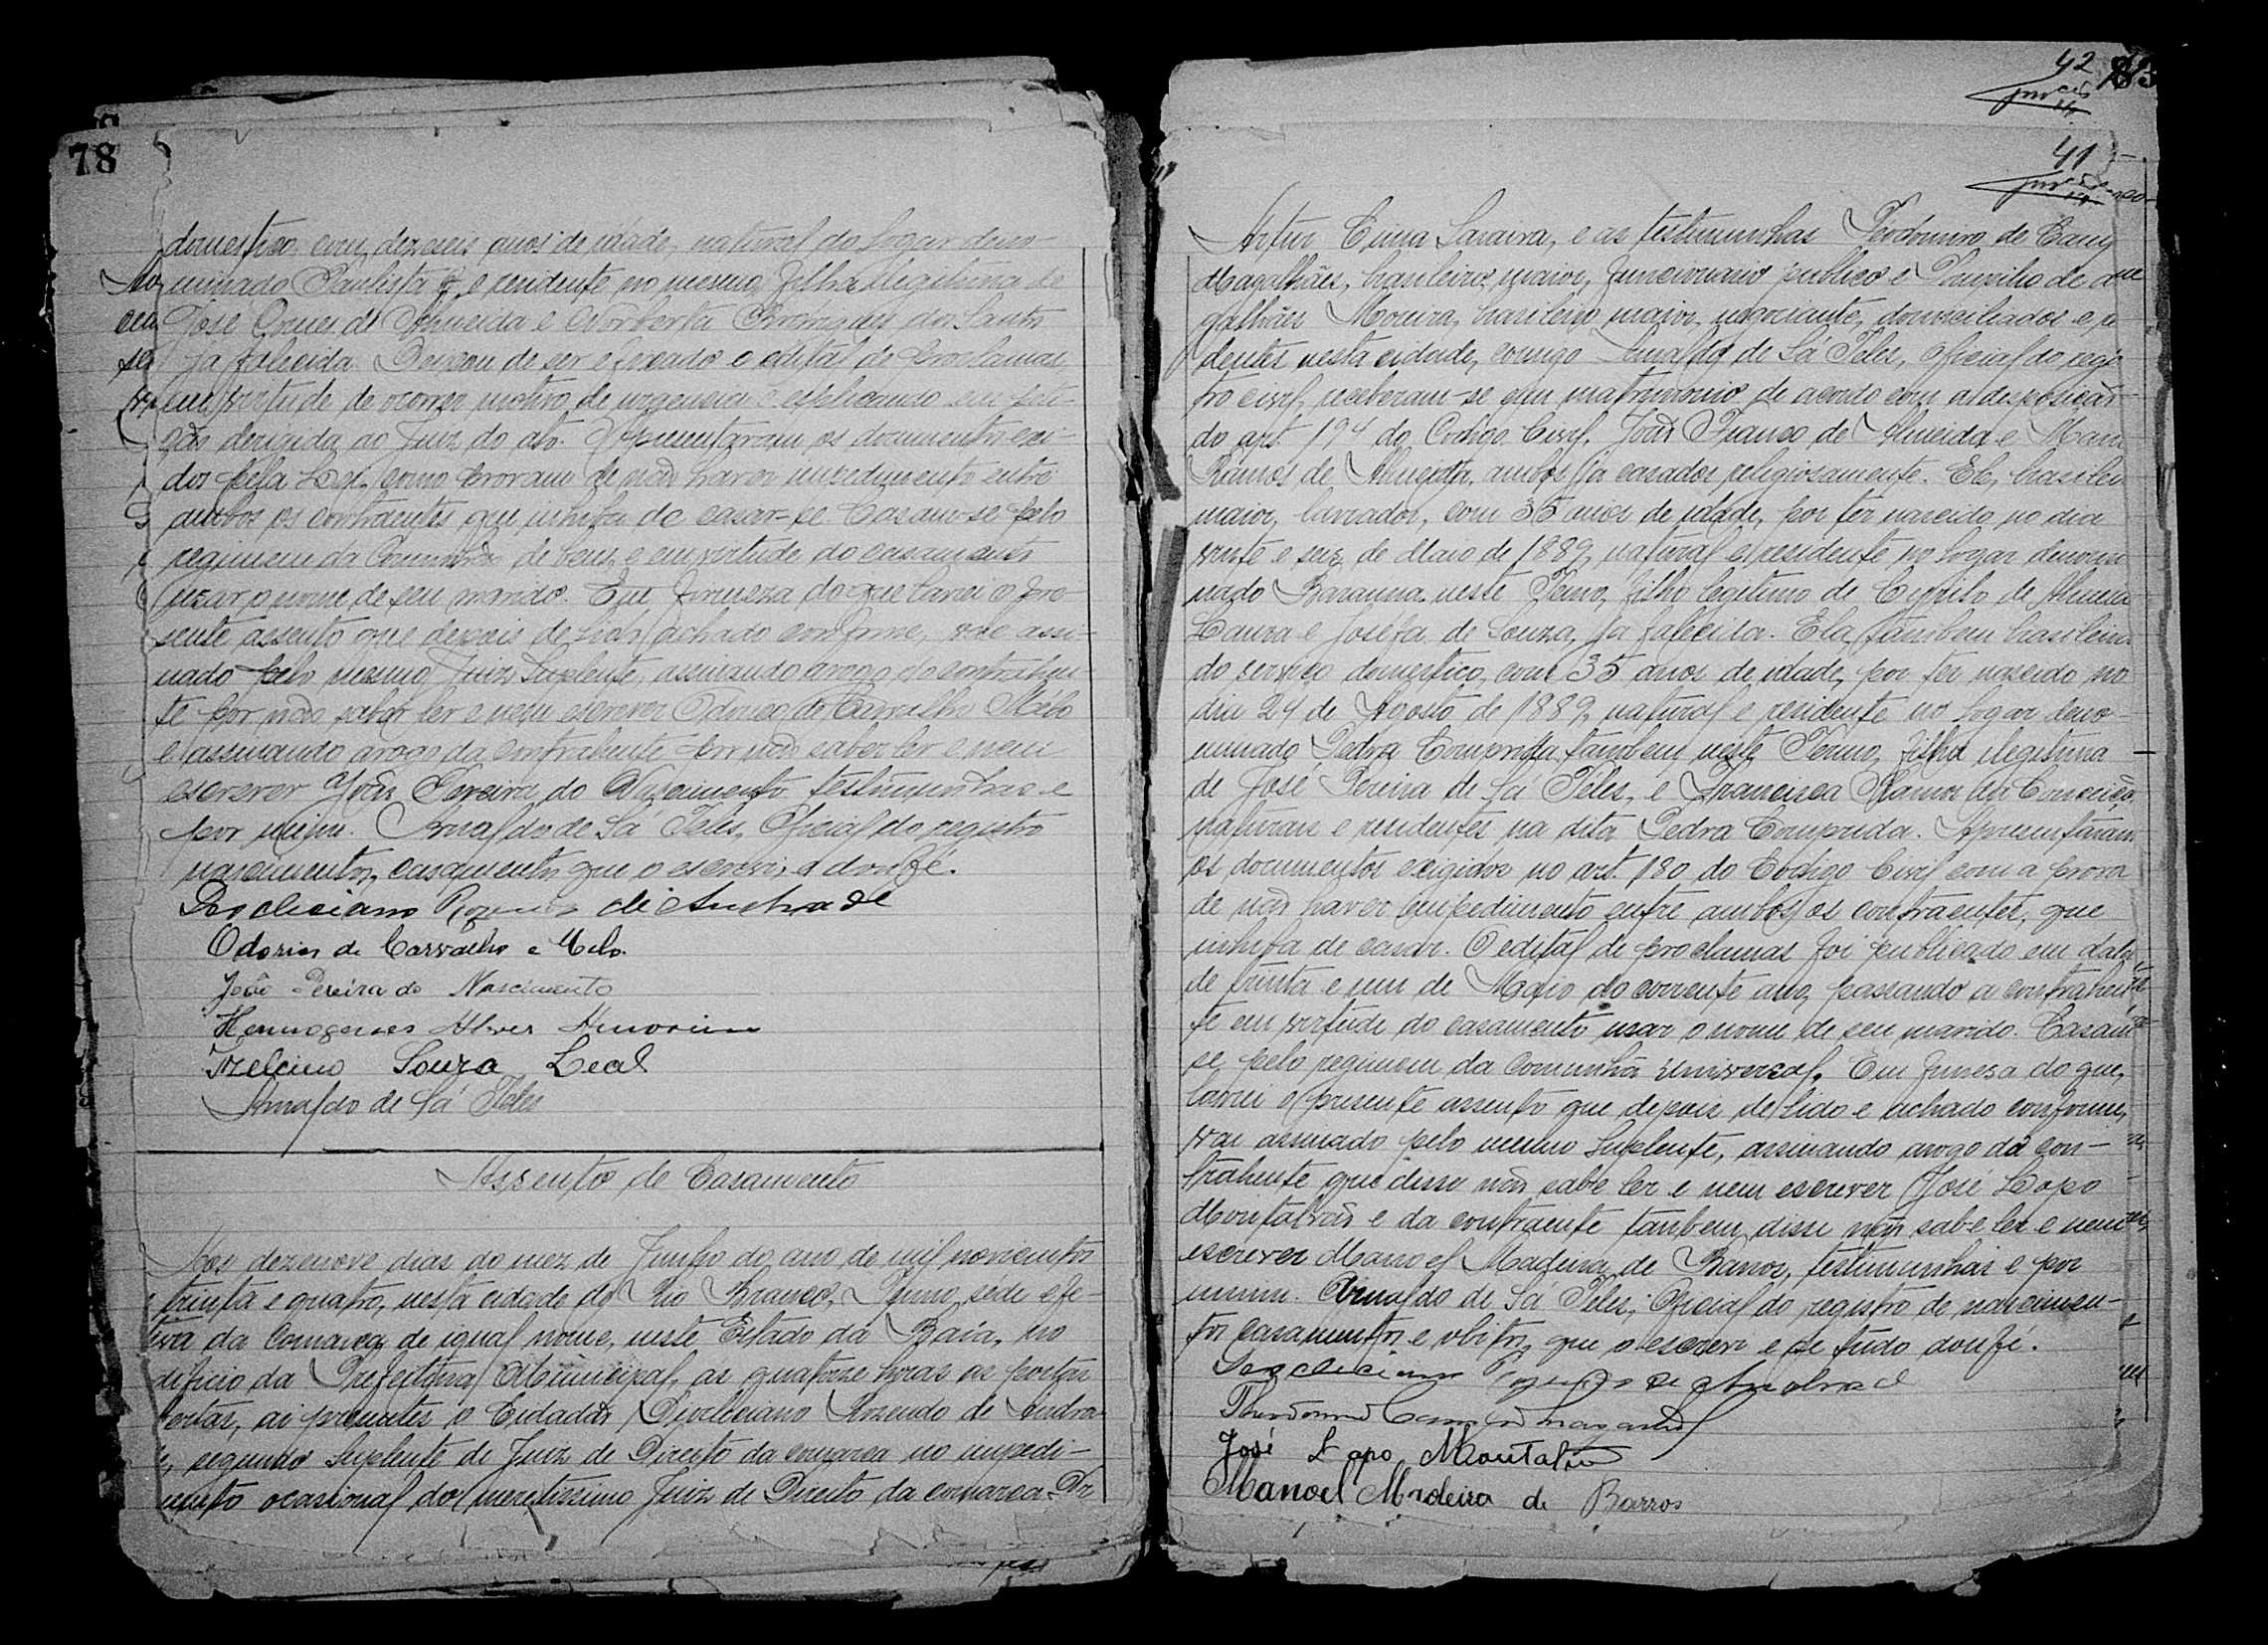 78
domestico com dezeseis anos de idade, natural do logar deno-
minado Paulista e residente no mesmo, filha ilegitima de
José Gomes de Almeida e Norberta dos Santos
ja falecida. Deixou de ser efixado o edital de proclamas
em virtude de ocorrer motivo de urgencia explicando em peti-
ção derigida ao Juiz do ato. Apresentaram os documentos exi-
dos pella Lei, como provam de não haver impedimento entre
ambos os contraentes que inhiba de casar-se Casam-se pelo
regimem da Comunhão de bens, e em virtude do casamento
usar o nome de seu marido. Em firmeza do que lavrei o pre-
sente assento que depois de lido, achado conforme, vae assi-
nado pelo mesmo Juiz Suplente, assinando arogo do contrahen-
te por não saber ler e nem escrever Odorico de Carvalho Mélo
e assinando arogo da contrahente por não saber ler e nem
escrever João Pereira do Nascimento testimunhas e
por mim. Arnaldo de Sá Teles, Oficial do registro
nascimentos, casamentos que o escrevi, e dou fé.
Deocleciano Rozendo de Andrade
Odorico de Carvalho e Melo.
João Pereira do Nascimento
Hermogenes Alves Amorim
Souza Leal
Arnaldo de Sá Teles
Assento de Casamento
Aos dezenove dias do mez de Junho do ano de mil novicentos
trinta e quatro, nesta cidade do Rio Branco, Termo, séde efe-
tiva da Comarca de igual nome, neste Estado da Baía, no
dificio da Prefeitura Municipal, as quatorze horas as portas
bertas, ai presentes o Cidadão Deocleciano Rozendo de Andra-
segundo Suplente de Juiz de Direito da comarca no impedi-
mento ocasional do meretissimo Juiz de Direito da comarca Dr
42
83
41
Artur Cunha Saraiva, e as testimunhas Teodomiro de Camp
Magalhães, brasileiro, maior, funcionario publico e de Ma
galhães Moreira, brasileiro, maior, negociante, domiciliados e re
dentes nesta cidade, comigo Arnaldo de Sá Teles, oficial do regis
tro civil, receberam-se em matrimonio de acordo com a desposição
do art. 194 do Codigo Civil, João Franco de Almeida e Maria
Ramos de Almeida, ambos ja casados religiosamente. Ele, brasilei
maior, lavrador, com 35 anos de idade, por ter nascido no dia
vinte e seis de Maio de 1889, natural e residente no logar denomi
nado Barauna neste Termo, filho legitimo de Cirilo de Almeida
Laura e Josefa de Souza, ja falecida. Ela, tambem brasileira
do serviço domestico, com 35 anos de idade, por ter nascido no
dia 24 de Agosto de 1889, natural e residente no logar deno-
minado Pedra Comprida, tambem neste Termo, filha ilegitima
de José Pereira de Sá Téles, e Francisca Ramos da Conceição
naturais e residentes na dita Pedra Comprida. Apresentaram
os documentos exigidos no art. 180 do Codigo Civil com a prova
de não haver impedimento entre ambos os contraentes, que
inhiba de casar. O edital de proclamas foi publicado em data
de trinta e um de Maio do corrente ano, passando a contrahen-
te em virtude do casamento usar o nome de seu marido. Casam
se, pelo regimem da comunhão universal. Em firmesa do que,
lavrei o presente assento que depois de lido e achado conforme,
vai assinado pelo mesmo Suplente, assinando arogo do con-
trahente que disse não sabe ler e nem escrever José Lapo
Montalvão e da contraente tambem disse não sabe ler e nem
escrever Manoel Madeira de Barros, testimunhas e por
mim. Arnaldo de Sá Téles, Oficial do registro de nascimen-
tos casamentos e obitos, que o escrevi e de tudo dou fé.
Deocleciano Rozendo de Andrade
José Lapo Montalvão
Manoel Madeira de Barros